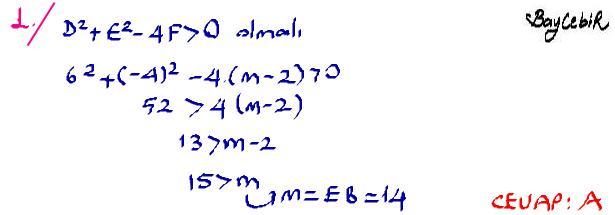 1./ D²+E²-4F>0 olmalı
BayCebiR
6²+(-4)²-4.(m-2)>0
52 > 4(m-2)
13>m-2
15>m
m=EB=14
CEVAP: A